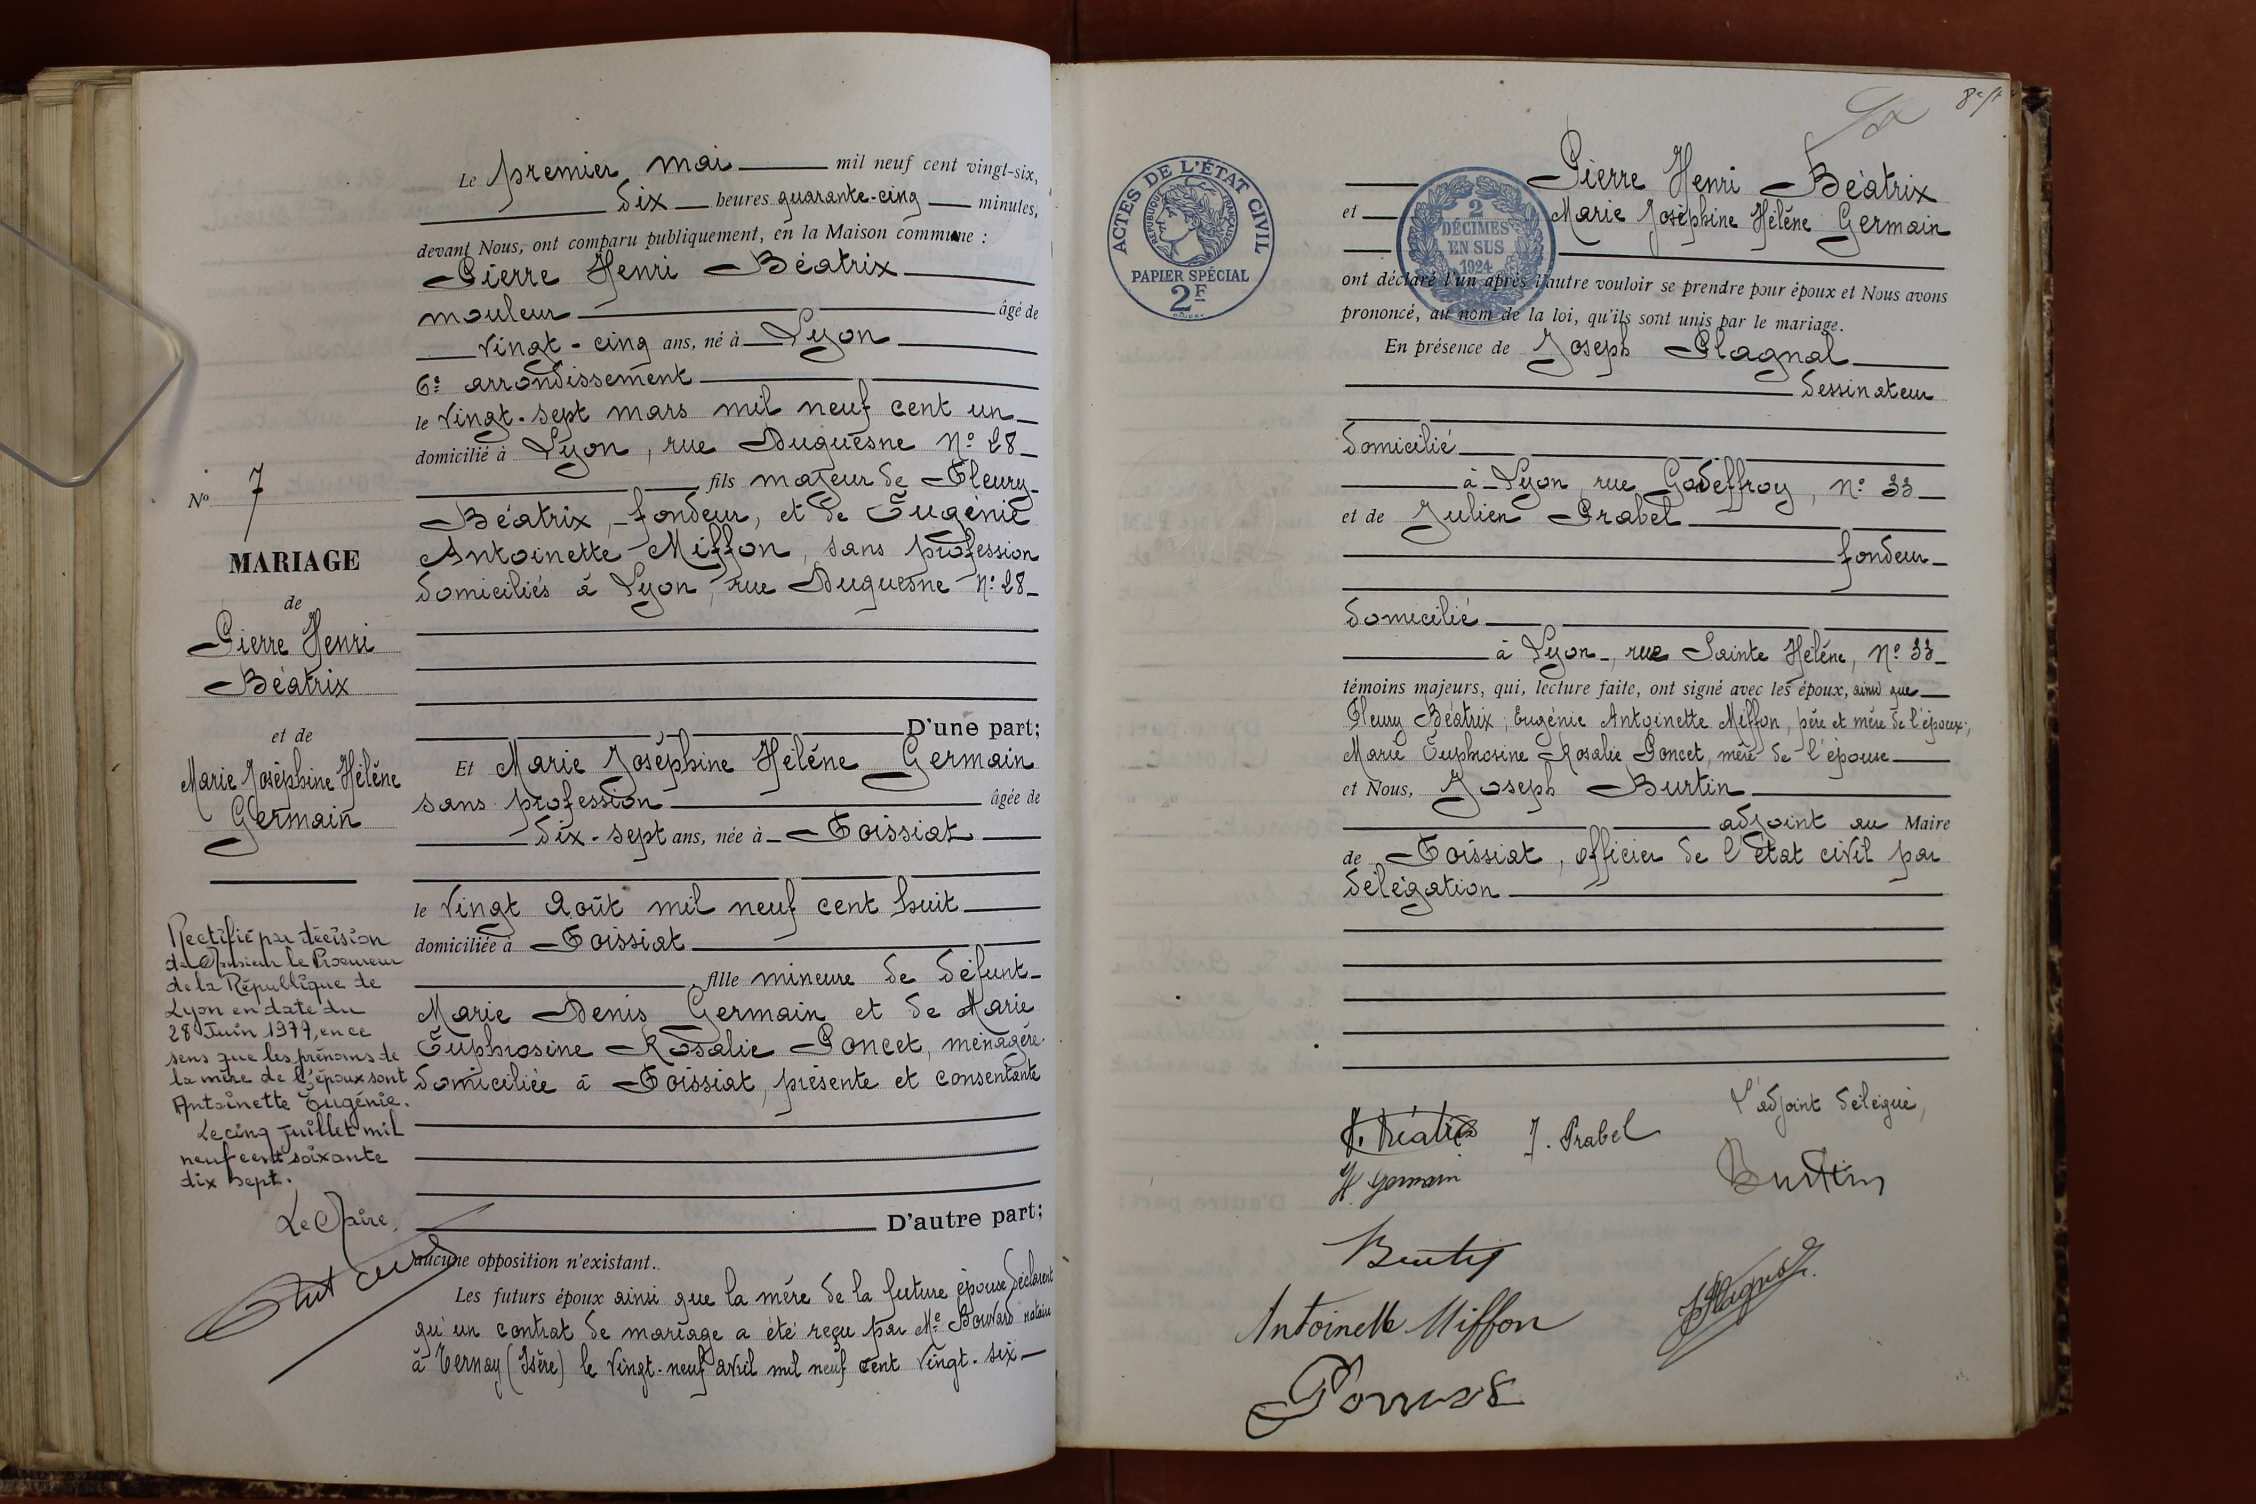 Le premier mai mil neuf cent vingt-six,
dix heures quarante-cinq minutes,
devant Nous, ont comparu publiquement, en la Maison commune :
Pierre Henri Béatrix
mouleur âgé de
vingt-cinq ans, né à Lyon
6e arrondissement
le vingt-sept mars mil neuf cent un
domicilié à Lyon, rue Duguesne No 28
fils majeur de Fleury
Béatrix, fondeur, et de Eugénie
Antoinette Miffon, sans profession
domiciliés à Lyon, rue Duguesne No 28
D'une part;
Et Marie Joséphine Hélène Germain
sans profession âgée de
dix-sept ans, née à Toissiat
le vingt août mil neuf cent huit
domiciliée à Toissiat
fille mineure de défunt
Marie Denis Germain et de Marie
Euphrosine Rosalie Poncet, ménagère
domiciliée à Toissiat, présente et consentante
D'autre part;
aucune opposition n'existant.
Les futurs époux ainsi que la mère de la future épouse déclarent
qu'un contrat de mariage a été reçu par Me Bouvard notaire
à Ternay (Isère) le vingt-neuf avril mil neuf cent vingt-six
No 7
MARIAGE
de
Pierre Henri
Béatrix
et de
Marie Joséphine Hélène
Germain
Rectifié par décision
de Monsieur le Procureur
de la République de
Lyon en date du
28 Juin 1977, en ce
sens que les prénoms de
la mère de l'époux sont
Antoinette Eugénie.
Le cinq juillet mil
neuf cent soixante
dix sept.
Le Maire,
ACTES DE L'ÉTAT CIVIL
RÉPUBLIQUE FRANÇAISE
PAPIER SPÉCIAL
2F
2
DÉCIMES
EN SUS
1924
Pierre Henri Béatrix
et Marie Joséphine Hélène Germain
ont déclaré l'un après l'autre vouloir se prendre pour époux et Nous avons
prononcé, au nom de la loi, qu'ils sont unis par le mariage.
En présence de Joseph Plagnal
dessinateur
domicilié
à Lyon, rue Godeffroy, No 33
et de Julien Prabel
fondeur
domicilié
à Lyon, rue Sainte Hélène, No 33
témoins majeurs, qui, lecture faite, ont signé avec les époux, ainsi que
Fleury Béatrix, Eugénie Antoinette Miffon, père et mère de l'époux;
Marie Euphrosine Rosalie Poncet, mère de l'épouse
et Nous, Joseph Burtin
adjoint au Maire
de Toissiat, officier de l'état civil par
délégation
L'adjoint délégué,
J. Prabel
H. Germain
Burtin
Antoinette Miffon